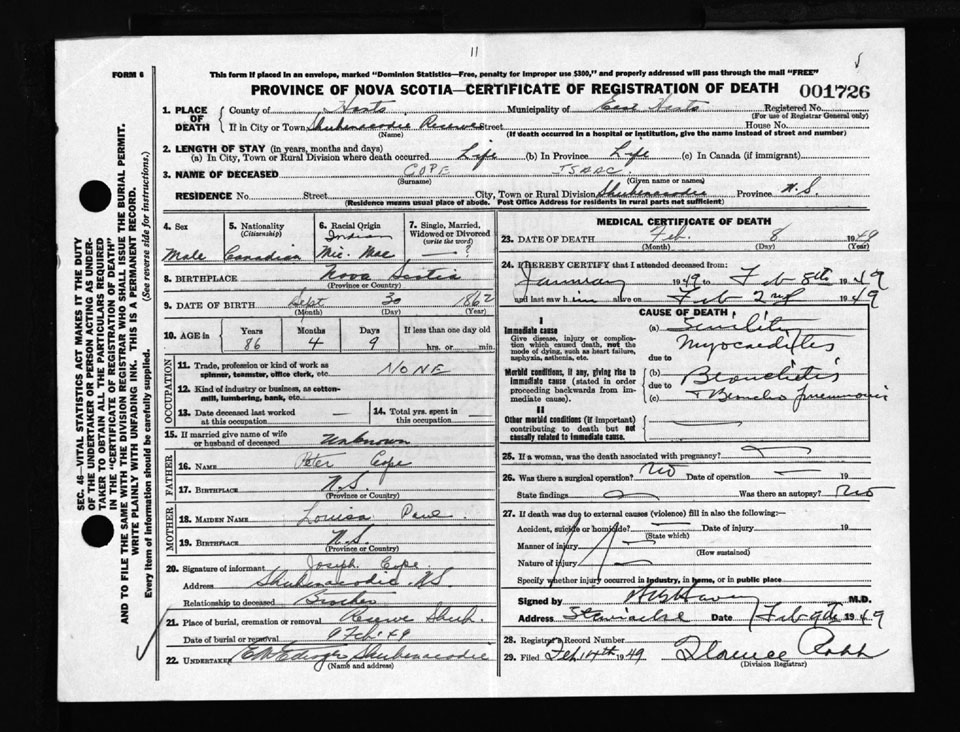 11
FORM 6
This form if placed in an envelope, marked "Dominion Statistics—Free, penalty for improper use $300," and properly addressed will pass through the mail "FREE"
PROVINCE OF NOVA SCOTIA—CERTIFICATE OF REGISTRATION OF DEATH 001726
1. PLACE OF DEATH
County of Hants Municipality of East Hants Registered No.
(For use of Registrar General only)
If in City or Town Shubenacadie Reserve Street House No.
(Name) (If death occurred in a hospital or institution, give the name instead of street and number)
2. LENGTH OF STAY (in years, months and days)
(a) In City, Town or Rural Division where death occurred Life (b) In Province Life (c) In Canada (if immigrant)
3. NAME OF DECEASED COPE ISAAC
(Surname) (Given name or names)
RESIDENCE No. Street City, Town or Rural Division Shubenacadie Province N.S.
(Residence means usual place of abode. Post Office Address for residents in rural parts not sufficient)
4. Sex 5. Nationality 6. Racial Origin 7. Single, Married, Widowed or Divorced
(Citizenship) (write the word)
Male Canadian Indian Mic. Mac — ?
8. BIRTHPLACE Nova Scotia
(Province or Country)
9. DATE OF BIRTH Sept 30 1862
(Month) (Day) (Year)
10. AGE in Years Months Days If less than one day old
86 4 9 hrs. or min.
OCCUPATION
11. Trade, profession or kind of work as spinner, teamster, office clerk, etc. NONE
12. Kind of industry or business, as cotton-mill, lumbering, bank, etc.
13. Date deceased last worked at this occupation —
14. Total yrs. spent in this occupation —
15. If married give name of wife or husband of deceased Unknown
FATHER
16. NAME Peter Cope
17. BIRTHPLACE N.S.
(Province or Country)
MOTHER
18. MAIDEN NAME Louisa Paul
19. BIRTHPLACE N.S.
(Province or Country)
20. Signature of informant Joseph Cope
Address Shubenacadie N.S.
Relationship to deceased Brother
21. Place of burial, cremation or removal Reserve Shub.
Date of burial or removal 9 Feb. 49
22. UNDERTAKER Shubenacadie
(Name and address)
MEDICAL CERTIFICATE OF DEATH
23. DATE OF DEATH Feb. 8 1949
(Month) (Day) (Year)
24. I HEREBY CERTIFY that I attended deceased from:
January 1949 to Feb 8th 1949
and last saw him alive on Feb 2nd 1949
CAUSE OF DEATH
I
Immediate cause
Give disease, injury or complication which caused death, not the mode of dying, such as heart failure, asphyxia, asthenia, etc.
(a) Senility
Myocarditis
due to
Morbid conditions, if any, giving rise to immediate cause (stated in order proceeding backwards from immediate cause).
(b) Bronchitis
due to
(c) + Broncho pneumonia
II
Other morbid conditions (if important) contributing to death but not causally related to immediate cause.
25. If a woman, was the death associated with pregnancy?
26. Was there a surgical operation? No Date of operation — 19
State findings Was there an autopsy? No
27. If death was due to external causes (violence) fill in also the following:—
Accident, suicide or homicide? Date of injury 19
(State which)
Manner of injury
(How sustained)
Nature of injury
Specify whether injury occurred in industry, in home, or in public place
Signed by M.D.
Address Stewiacke Date Feb 9th 1949
28. Registrar's Record Number
29. Filed Feb 14th 1949 Florence Robb
(Division Registrar)
SEC. 46—VITAL STATISTICS ACT MAKES IT THE DUTY
OF THE UNDERTAKER OR PERSON ACTING AS UNDER-
TAKER TO OBTAIN ALL THE PARTICULARS REQUIRED
IN THE "CERTIFICATE OF REGISTRATION OF DEATH"
AND TO FILE THE SAME WITH THE DIVISION REGISTRAR WHO SHALL ISSUE THE BURIAL PERMIT.
WRITE PLAINLY WITH UNFADING INK. THIS IS A PERMANENT RECORD.
Every item of information should be carefully supplied. (See reverse side for instructions.)